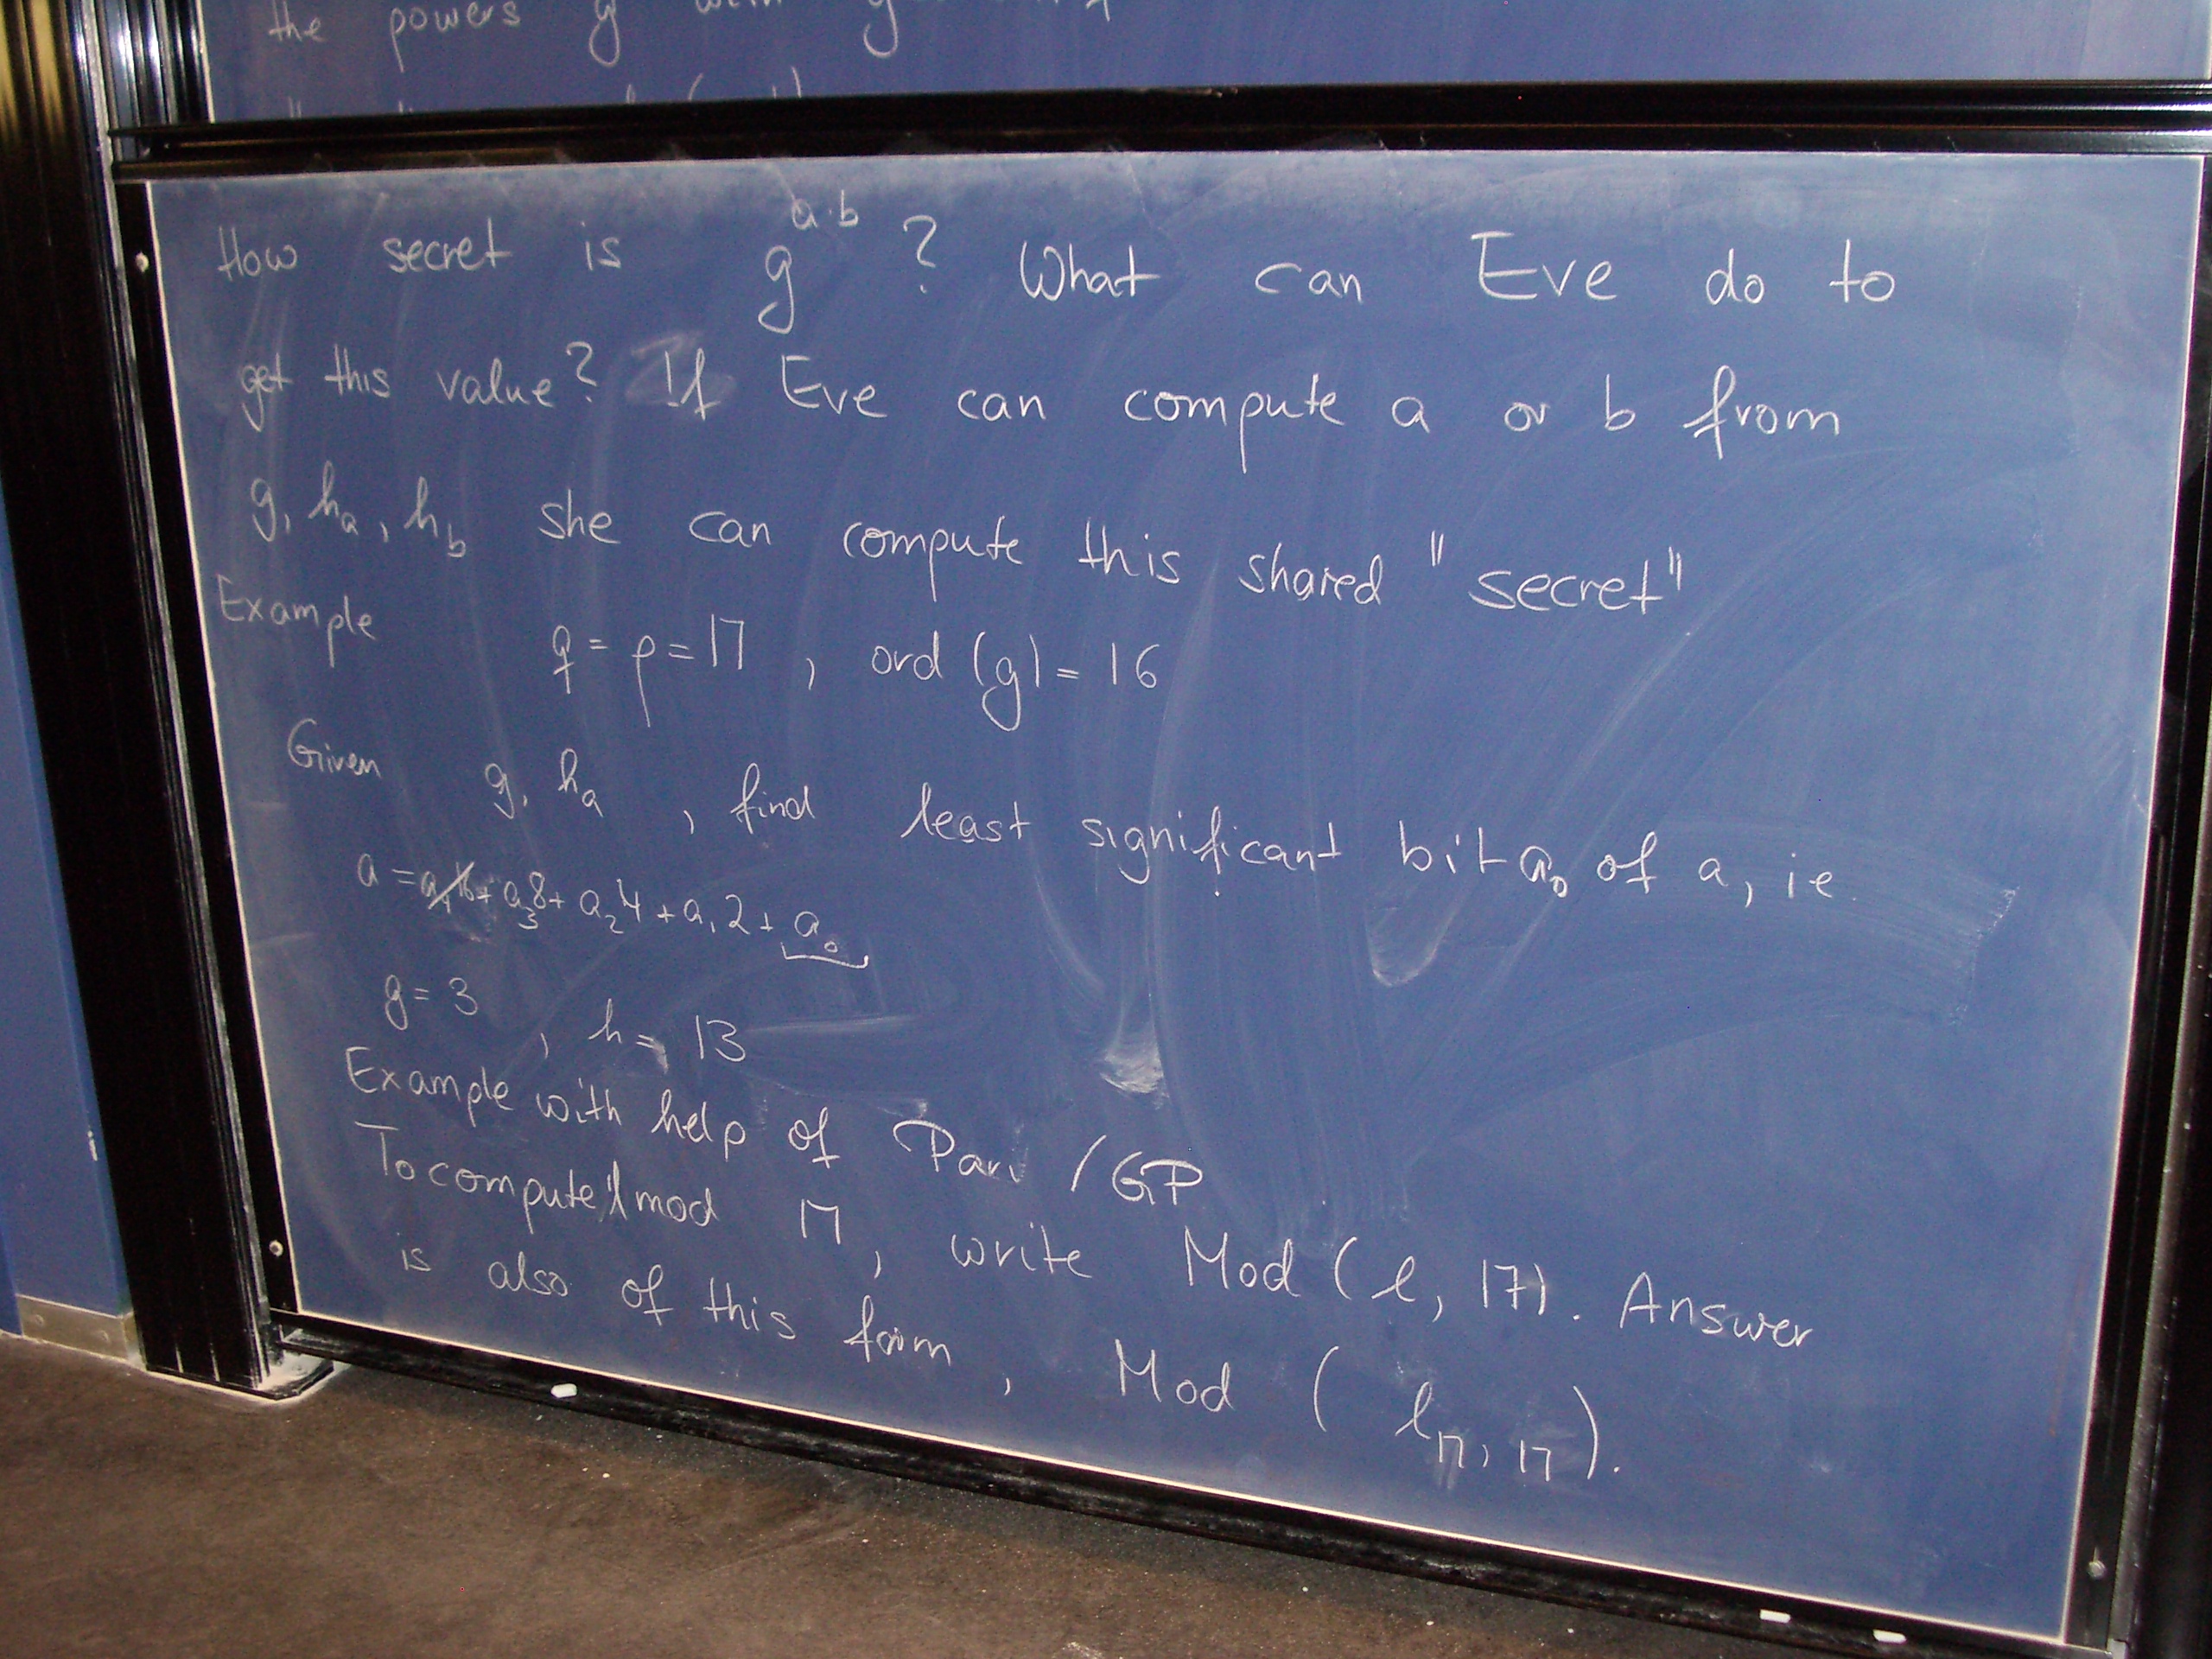 the powers g with g
How secret is g^{a·b} ? What can Eve do to
get this value? If Eve can compute a or b from
g, h_a, h_b she can compute this shared "secret"
Example q = p = 17 , ord (g) = 16
Given g, h_a , find least significant bit a_0 of a, ie
a = a_4 16 + a_3 8 + a_2 4 + a_1 2 + a_0
g = 3 , h = 13
Example with help of Pari /GP
To compute l mod 17 , write Mod (l, 17). Answer
is also of this form , Mod ( l_17, 17 ).